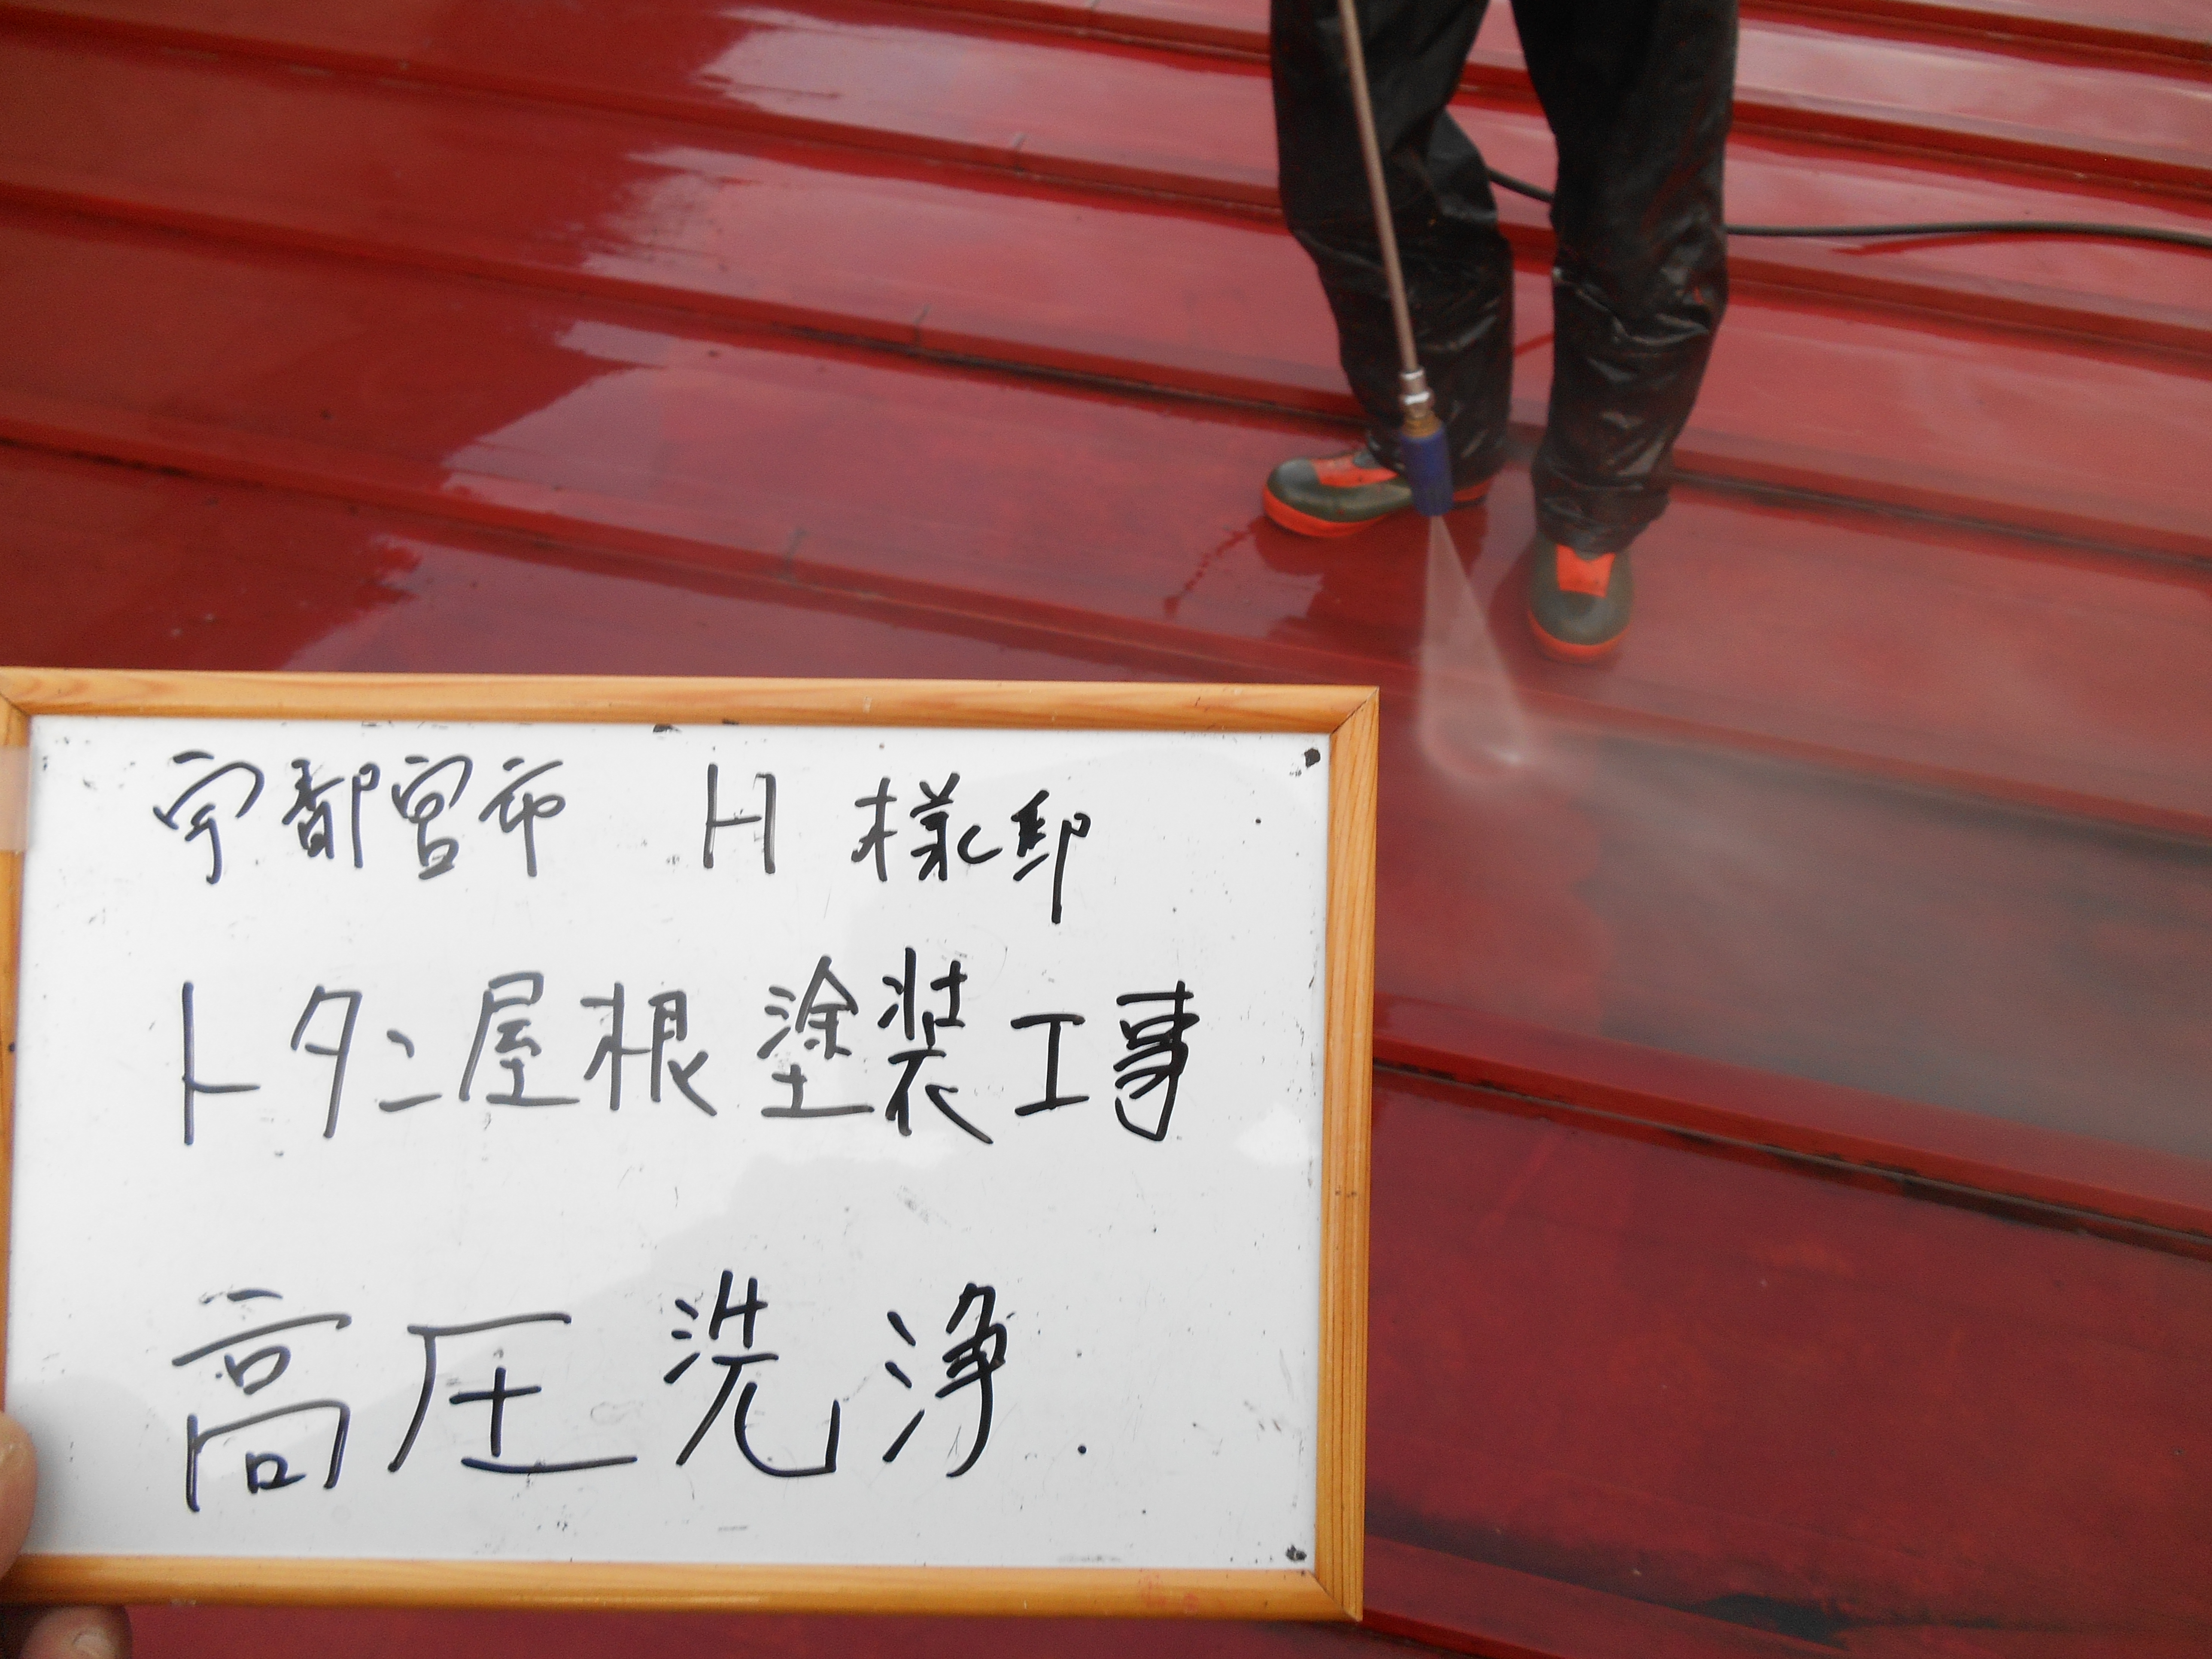 宇都宮市 H 様邸
トタン屋根塗装工事
高圧洗浄.